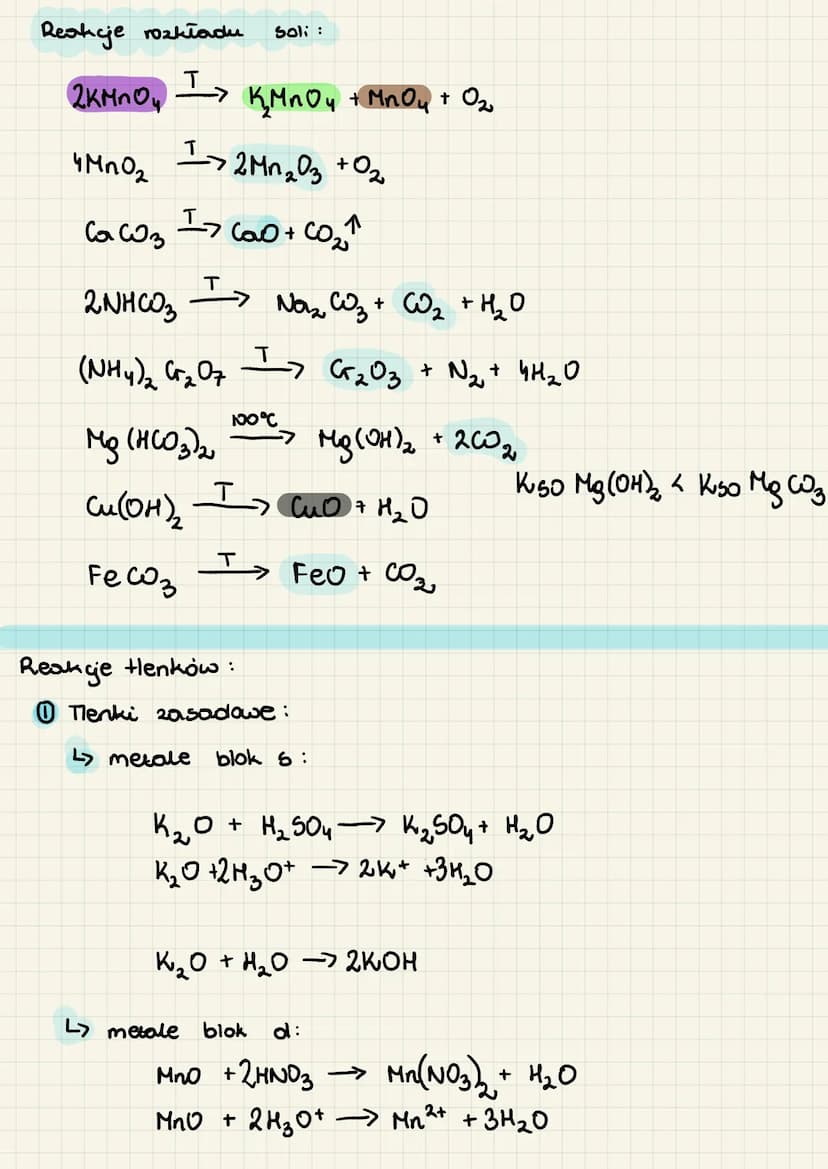 Reakcje rozkładu soli:
2KMnO₄ T→ K₂MnO₄ + MnO₄ + O₂
4MnO₂ T→ 2Mn₂O₃ + O₂
CaCO₃ T→ CaO + CO₂↑
2NHCO₃ T→ Na₂CO₃ + CO₂ + H₂O
(NH₄)₂Cr₂O₇ T→ Cr₂O₃ + N₂ + 4H₂O
Mg(HCO₃)₂ 100°C→ Mg(OH)₂ + 2CO₂
Kso Mg(OH)₂ < Kso MgCO₃
Cu(OH)₂ T→ CuO + H₂O
FeCO₃ T→ FeO + CO₂
Reakcje tlenków:
① Tlenki zasadowe:
↳ metale blok s:
K₂O + H₂SO₄ → K₂SO₄ + H₂O
K₂O + 2H₃O⁺ → 2K⁺ + 3H₂O
K₂O + H₂O → 2KOH
↳ metale blok d:
MnO + 2HNO₃ → Mn(NO₃)₂ + H₂O
MnO + 2H₃O⁺ → Mn²⁺ + 3H₂O